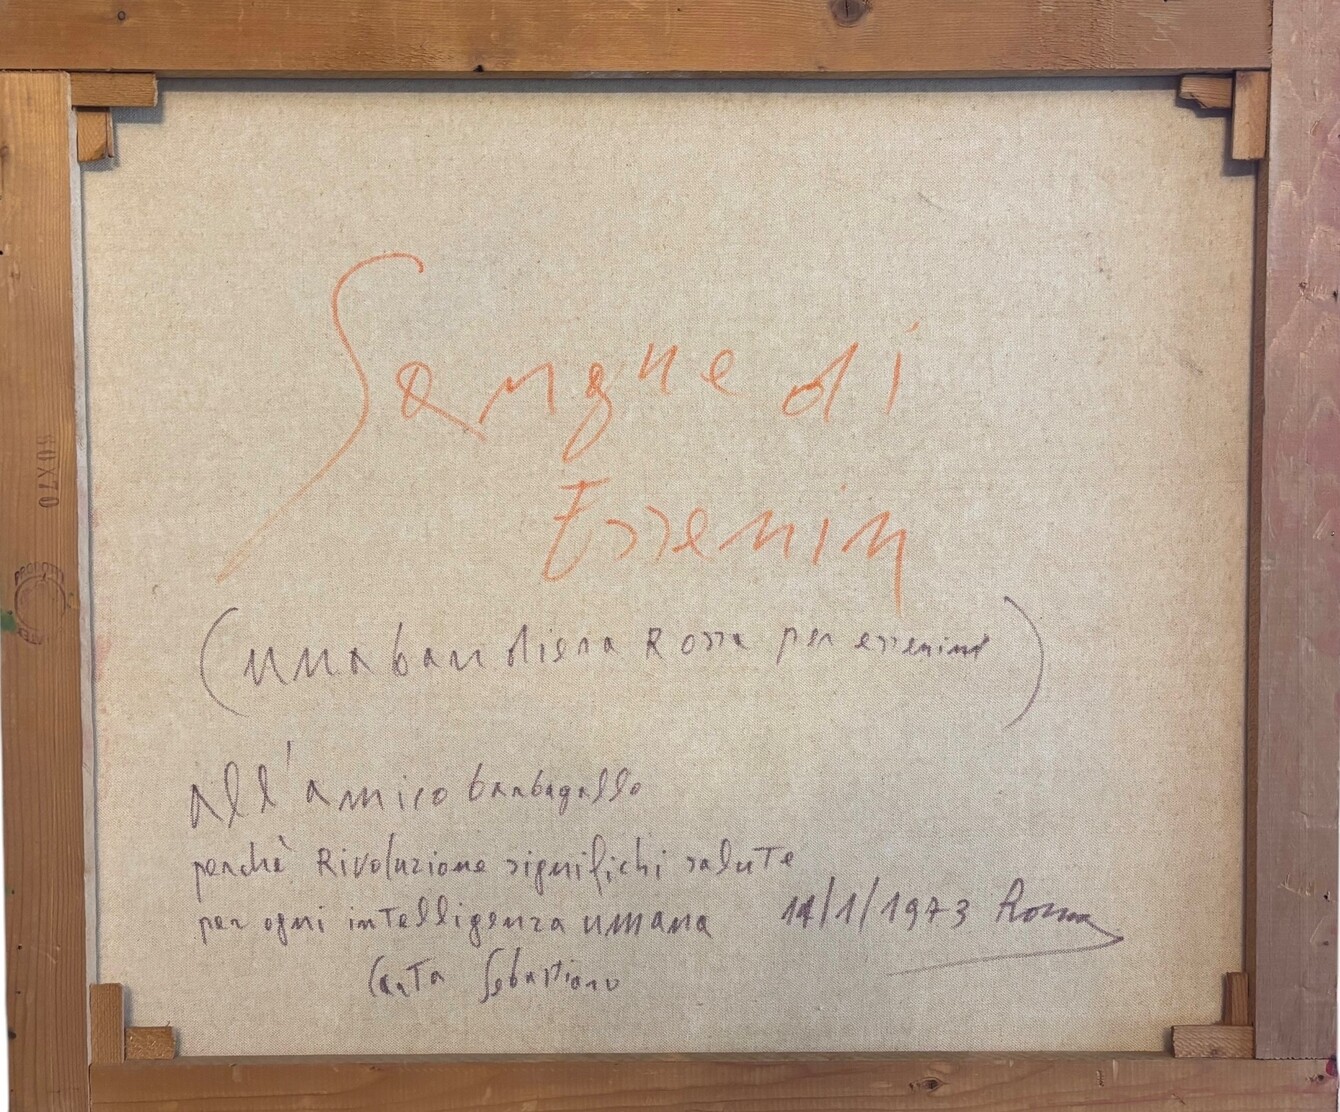 Sangue di
Essenin
(una bandiera Rossa per essenine)
all'amico barbagallo
perchè Rivoluzione significhi saluTe
per ogni inTelligenza umana 14/1/1973 Roma
CarTa Sebastiano
60x70